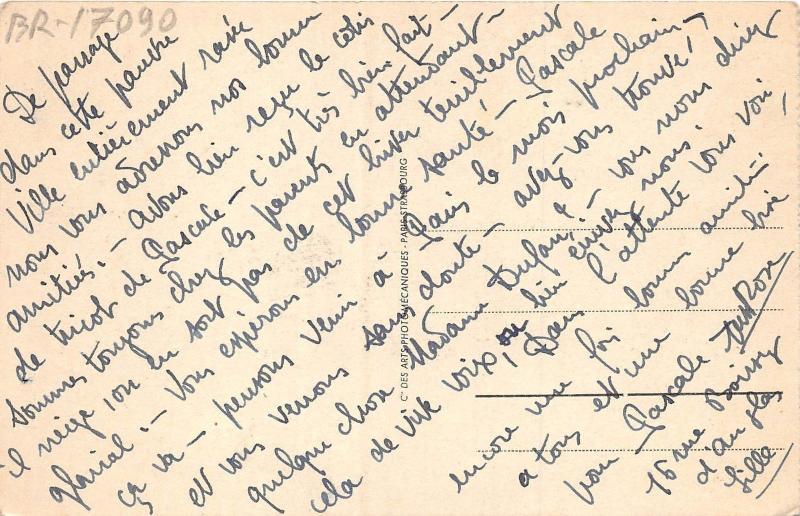 BR-17090
De passage
dans cette pauvre
Ville entièrement rasée
nous vous adressons nos bonnes
amitiés. - avons bien reçu le colis
de tricot de Pascale - c'est très bien fait -
Sommes toujours chez les parents en attendant -
il neige, on en sort pas de cet hiver terriblement
glacial. - Vous espérons en bonne santé - Pascale
ça va - pensons venir à Paris le mois prochain -
et vous verrons sans doute - avez-vous trouvé
quelque chose Madame - vous nous direz
cela de vive voix, ou bien écrivez nous.
Dans l'attente vous voir,
encore une fois bonnes amitiés
a tous et une bonne bise
pour Pascale
16 rue Boissy
d'anglas
Lille
Cie DES ARTS PHOTOMECANIQUES - PARIS-STRASBOURG